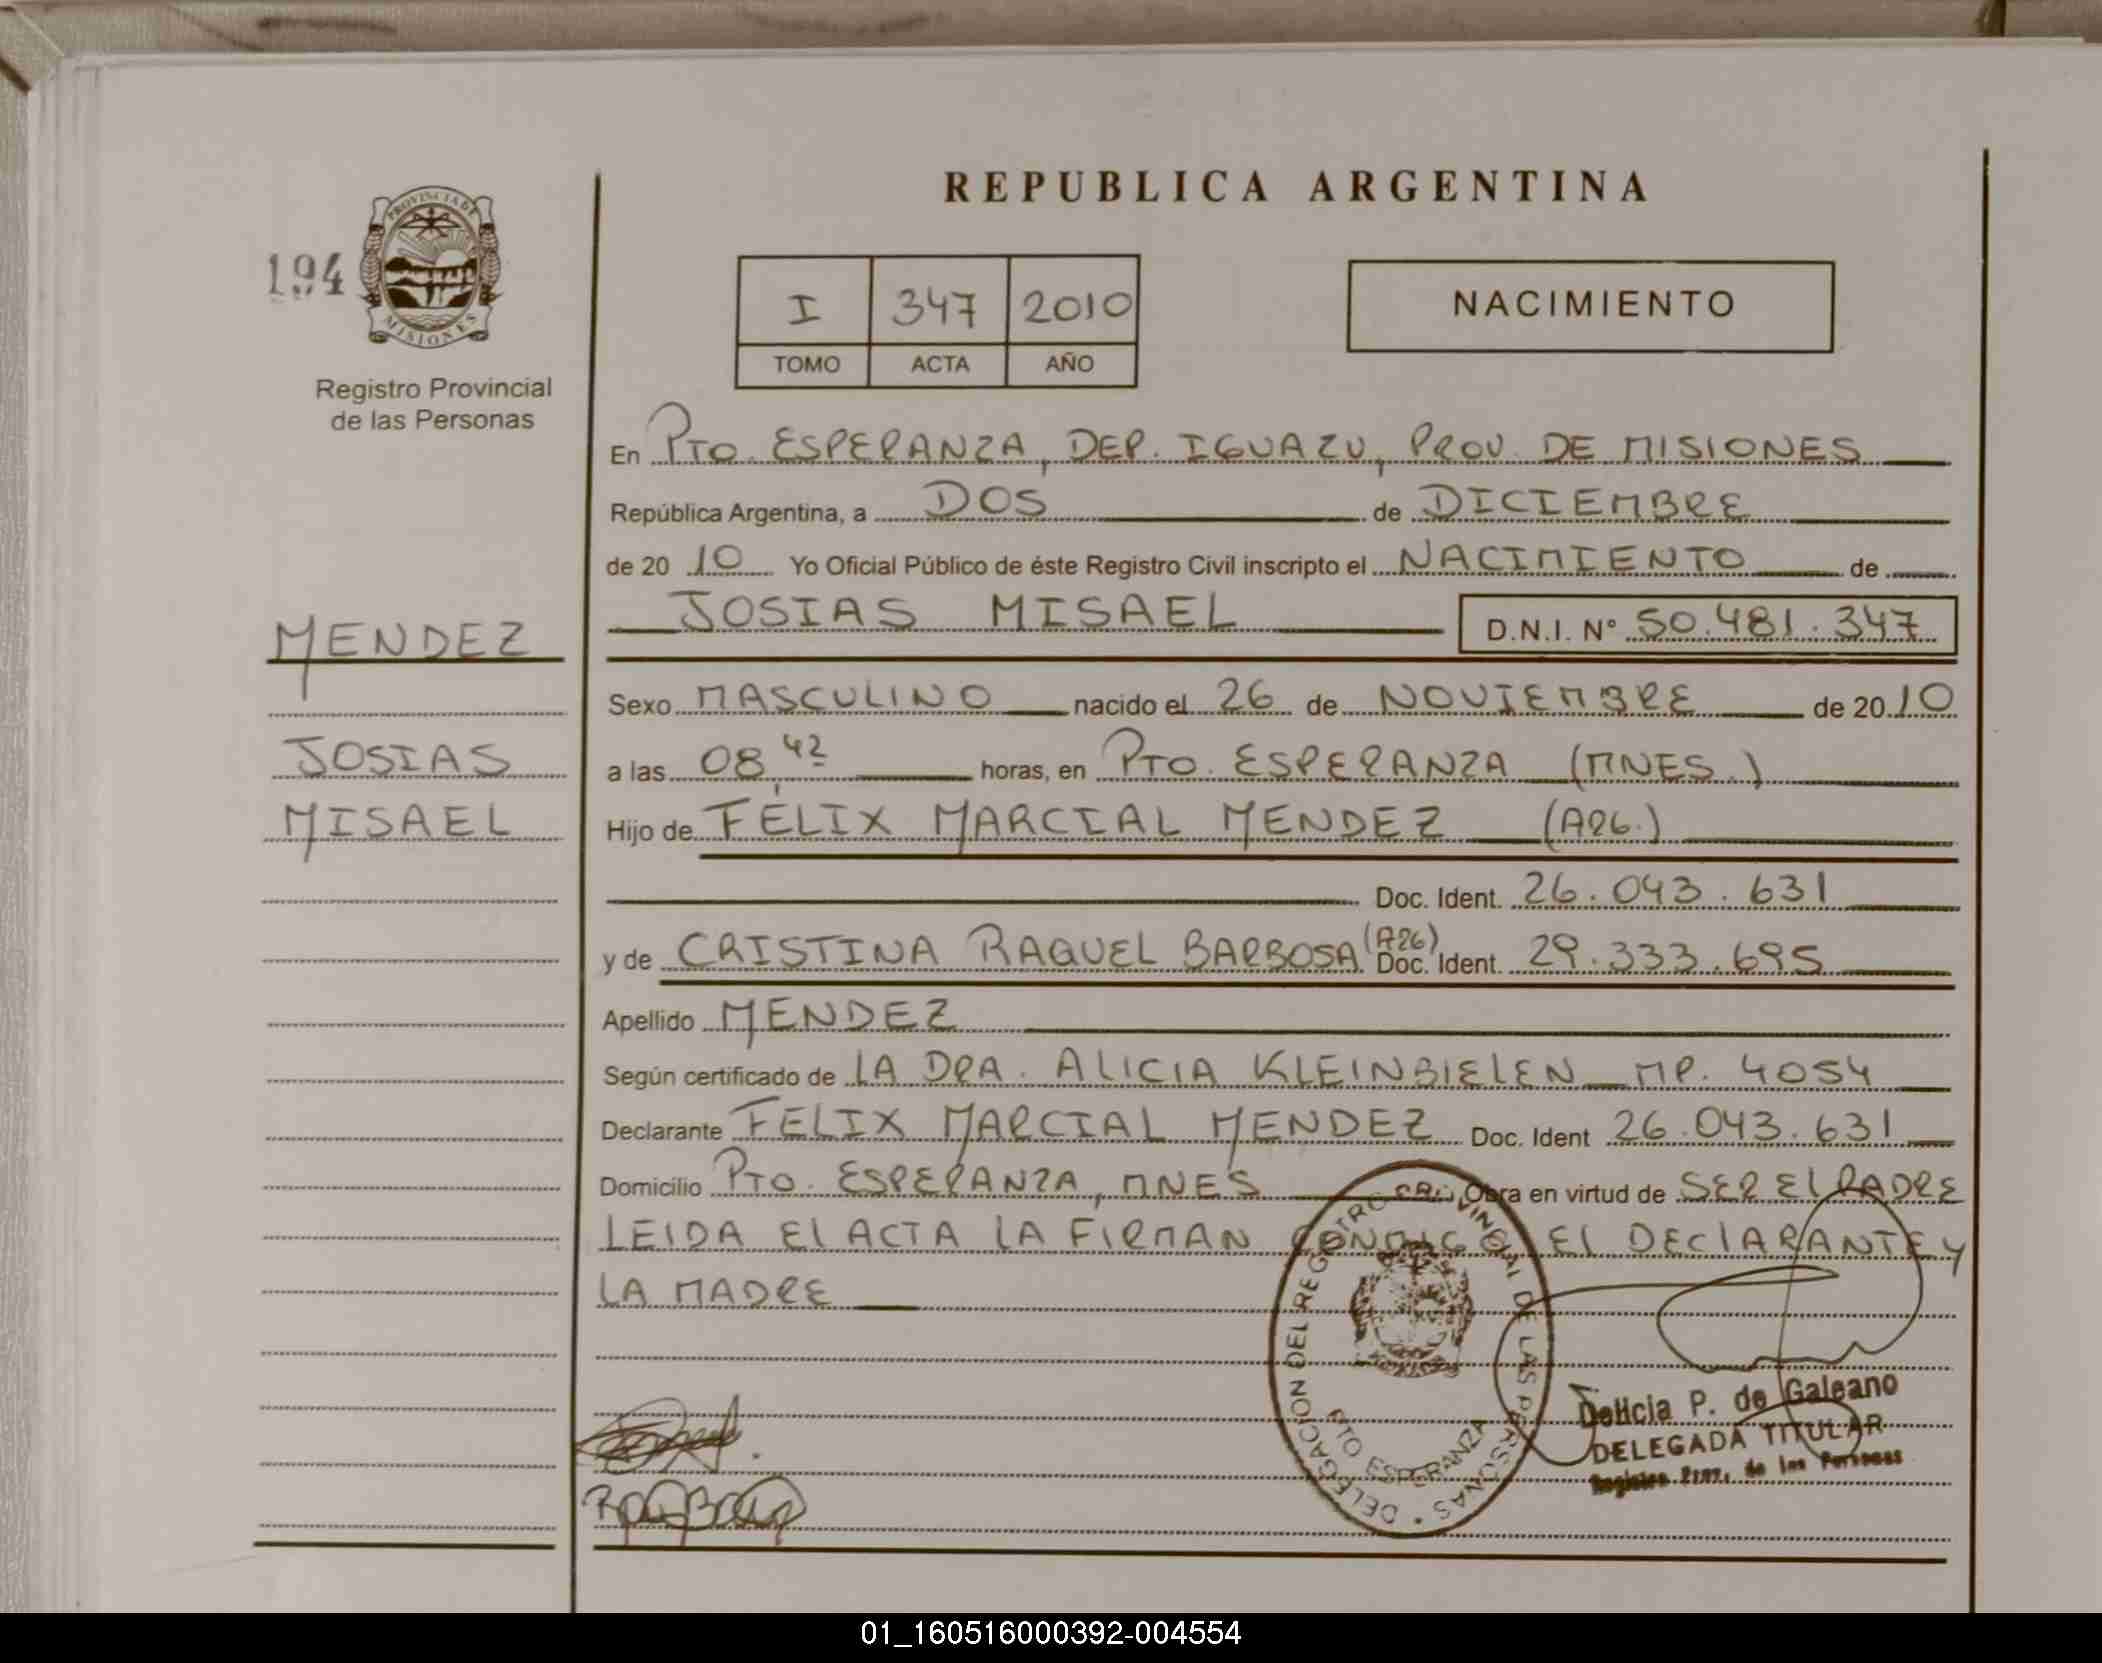 REPUBLICA ARGENTINA
194
PROVINCIA DE
MISIONES
Registro Provincial
de las Personas
I 347 2010
TOMO ACTA AÑO
NACIMIENTO
En PTO. ESPERANZA, DEP. IGUAZU, PROV. DE MISIONES
República Argentina, a DOS de DICIEMBRE
de 20 10 Yo Oficial Público de éste Registro Civil inscripto el NACIMIENTO de
JOSIAS MISAEL D.N.I. Nº 50.481.347
MENDEZ
JOSIAS
MISAEL
Sexo MASCULINO nacido el 26 de NOVIEMBRE de 20 10
a las 08,42 horas, en PTO. ESPERANZA (MNES.)
Hijo de FÉLIX MARCIAL MENDEZ (ARG.)
Doc. Ident. 26.043.631
y de CRISTINA RAQUEL BARBOSA (ARG) Doc. Ident. 29.333.695
Apellido MENDEZ
Según certificado de LA DRA. ALICIA KLEINBIELEN MP. 4054
Declarante FELIX MARCIAL MENDEZ Doc. Ident 26.043.631
Domicilio PTO. ESPERANZA, MNES Obra en virtud de SER EL PADRE
LEIDA El ACTA LA FIRMAN CONMIGO El DEClARANTE Y
LA MADRE
DELEGACION DEL REGISTRO PROVINCIAL DE LAS PERSONAS
PTO ESPERANZA
Delicia P. de Galeano
DELEGADA TITULAR
Registro Prov. de las Personas
01_160516000392-004554